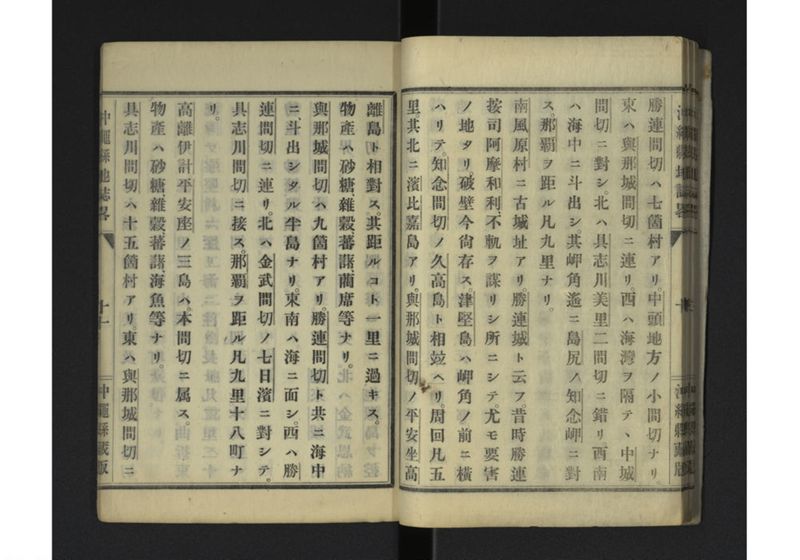 勝連間切ハ七箇村アリ。中頭地方ノ小間切ナリ
東ハ與那城間切ニ連リ。西ハ海灣ヲ隔テ、中城
間切ニ對シ。北ハ具志川美里二間切ニ錯リ。西南
ハ海中ニ斗出シ其岬角遙ニ島尻ノ知念岬ニ對
ス。那覇ヲ距ル凡九里ナリ。
南風原村ニ古城址アリ。勝連城ト云フ昔時勝連
按司阿摩和利、不軌ヲ謀リシ所ニシテ。尤モ要害
ノ地タリ。破壁今尙存ス津堅島ハ岬角ノ前ニ橫
ハリテ知念間切ノ久高島ト相竝ヘリ。周回凡五
里其北ニ濱比嘉島アリ。與那城間切ノ平安坐高
離島ト相對ス。其距ルコト一里ニ過キス。
物產ハ砂糖、雜穀蕃藷、藺席等ナリ。
與那城間切ハ九箇村アリ。勝連間切ト共ニ海中
ニ斗出シタル半島ナリ。東南ハ海ニ面シ。西ハ勝
連間切ニ連リ。北ハ金武間切ノ七日濱ニ對シテ。
具志川間切ニ接ス。那覇ヲ距ル凡九里十八町ナ
リ。
高離伊計平安座ノ三島ハ。本間切ニ属ス。
物產ハ砂糖、雜穀蕃藷海魚等ナリ。
具志川間切ハ十五箇村アリ。東ハ與那城間切ニ
沖繩縣地誌畧
十一
沖繩縣藏版